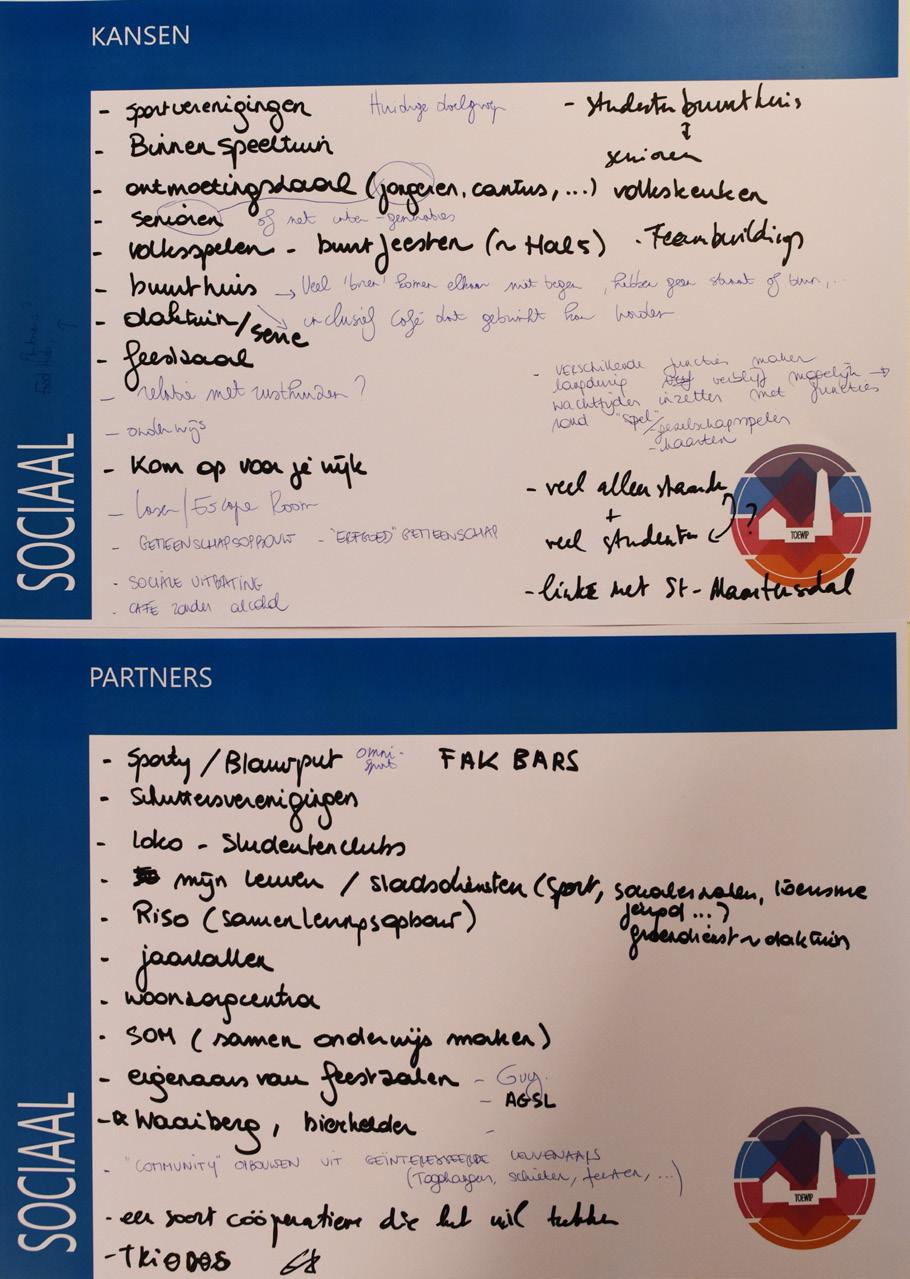 KANSEN
- sportverenigingen
Huidige doelgroep
- studenten buurthuis
- Binnenspeeltuin
senioren
- ontmoetingszaal (jongeren, cantus, ...)
volkskeuken
- senioren
of net inter-generaties
- volksspelen - buurtfeesten (~ Hal 5)
- Teambuilding
- buurthuis
→ Veel komen elkaar niet tegen, hebben geen straat of buur, ...
- daktuin/serre
inclusief café dat gebruikt kan worden
- feestzaal
- relatie met rusthuizen?
- verschillende functies maken
langdurig verblijf mogelijk →
wachttijden inzetten met functies
rond "spel"
/gezelschapsspelen
- kaarten
- onderwijs
- Kom op voor je wijk
- Laser/Escape Room
- GEMEENSCHAPSOPBOUW - "ERFGOED" GEMEENSCHAP
- SOCIALE UITBATING
- CAFÉ zonder alcohol
- veel alleenstaande
+
veel studenten
?
- linke met St-Maartensdal
SOCIAAL
TOEWIP
PARTNERS
- Sporty / Blauwput
omni-
sport
FAK BARS
- Schuttersverenigingen
- Loko - Studentenclubs
- mijn Leuven / stadsdiensten (sport, sociale zaken, toerisme
jeugd ...)
groendienst ~ daktuin
- Riso (samenlevingsopbouw)
- jaartallen
- woonzorgcentra
- SOM (samen onderwijs maken)
- eigenaars van feestzalen
- Guy
- AGSL
- Waaiberg, bierkelder
- "COMMUNITY" OPBOUWEN UIT GEÏNTERESSEERDE LEUVENAARS
schieten, feesten, ...)
- een soort coöperatieve die het wil trekken
- TRIODOS
SOCIAAL
TOEWIP